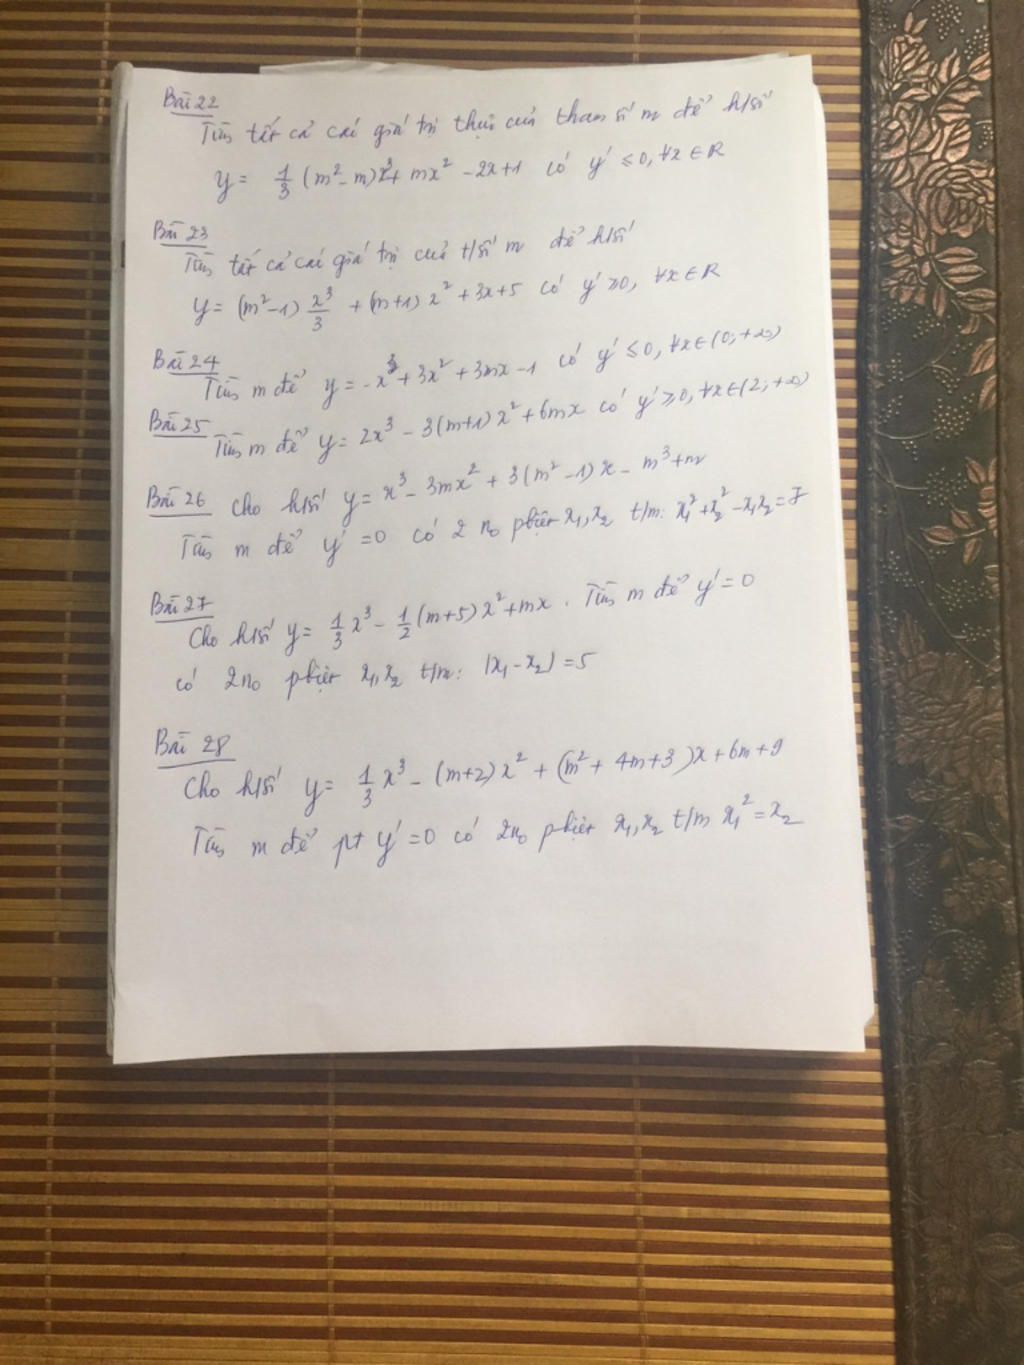 Bài 22
Tìm tất cả các giá trị thực của tham số m để h/số
y = 1/3 (m² - m)x³ + mx² - 2x + 1 có y' ≤ 0, ∀x ∈ R
Bài 23
Tìm tất cả các giá trị của t/số m để h/số
y = (m² - 1) x³/3 + (m+1) x² + 3x + 5 có y' ≥ 0, ∀x ∈ R
Bài 24
Tìm m để y = -x³ + 3x² + 3mx - 1 có y' ≤ 0, ∀x ∈ (0; +∞)
Bài 25
Tìm m để y = 2x³ - 3(m+1)x² + 6mx có y' ≥ 0, ∀x ∈ (2; +∞)
Bài 26 Cho h/số y = x³ - 3mx² + 3(m² - 1)x - m³ + m
Tìm m để y' = 0 có 2 no pbiệt x₁, x₂ t/m: x₁² + x₂² - x₁x₂ = 7
Bài 27
Cho h/số y = 1/3 x³ - 1/2 (m+5)x² + mx. Tìm m để y' = 0
có 2 no pbiệt x₁, x₂ t/m: |x₁ - x₂| = 5
Bài 28
Cho h/số y = 1/3 x³ - (m+2)x² + (m² + 4m + 3)x + 6m + 9
Tìm m để pt y' = 0 có 2 no pbiệt x₁, x₂ t/m x₁² = x₂